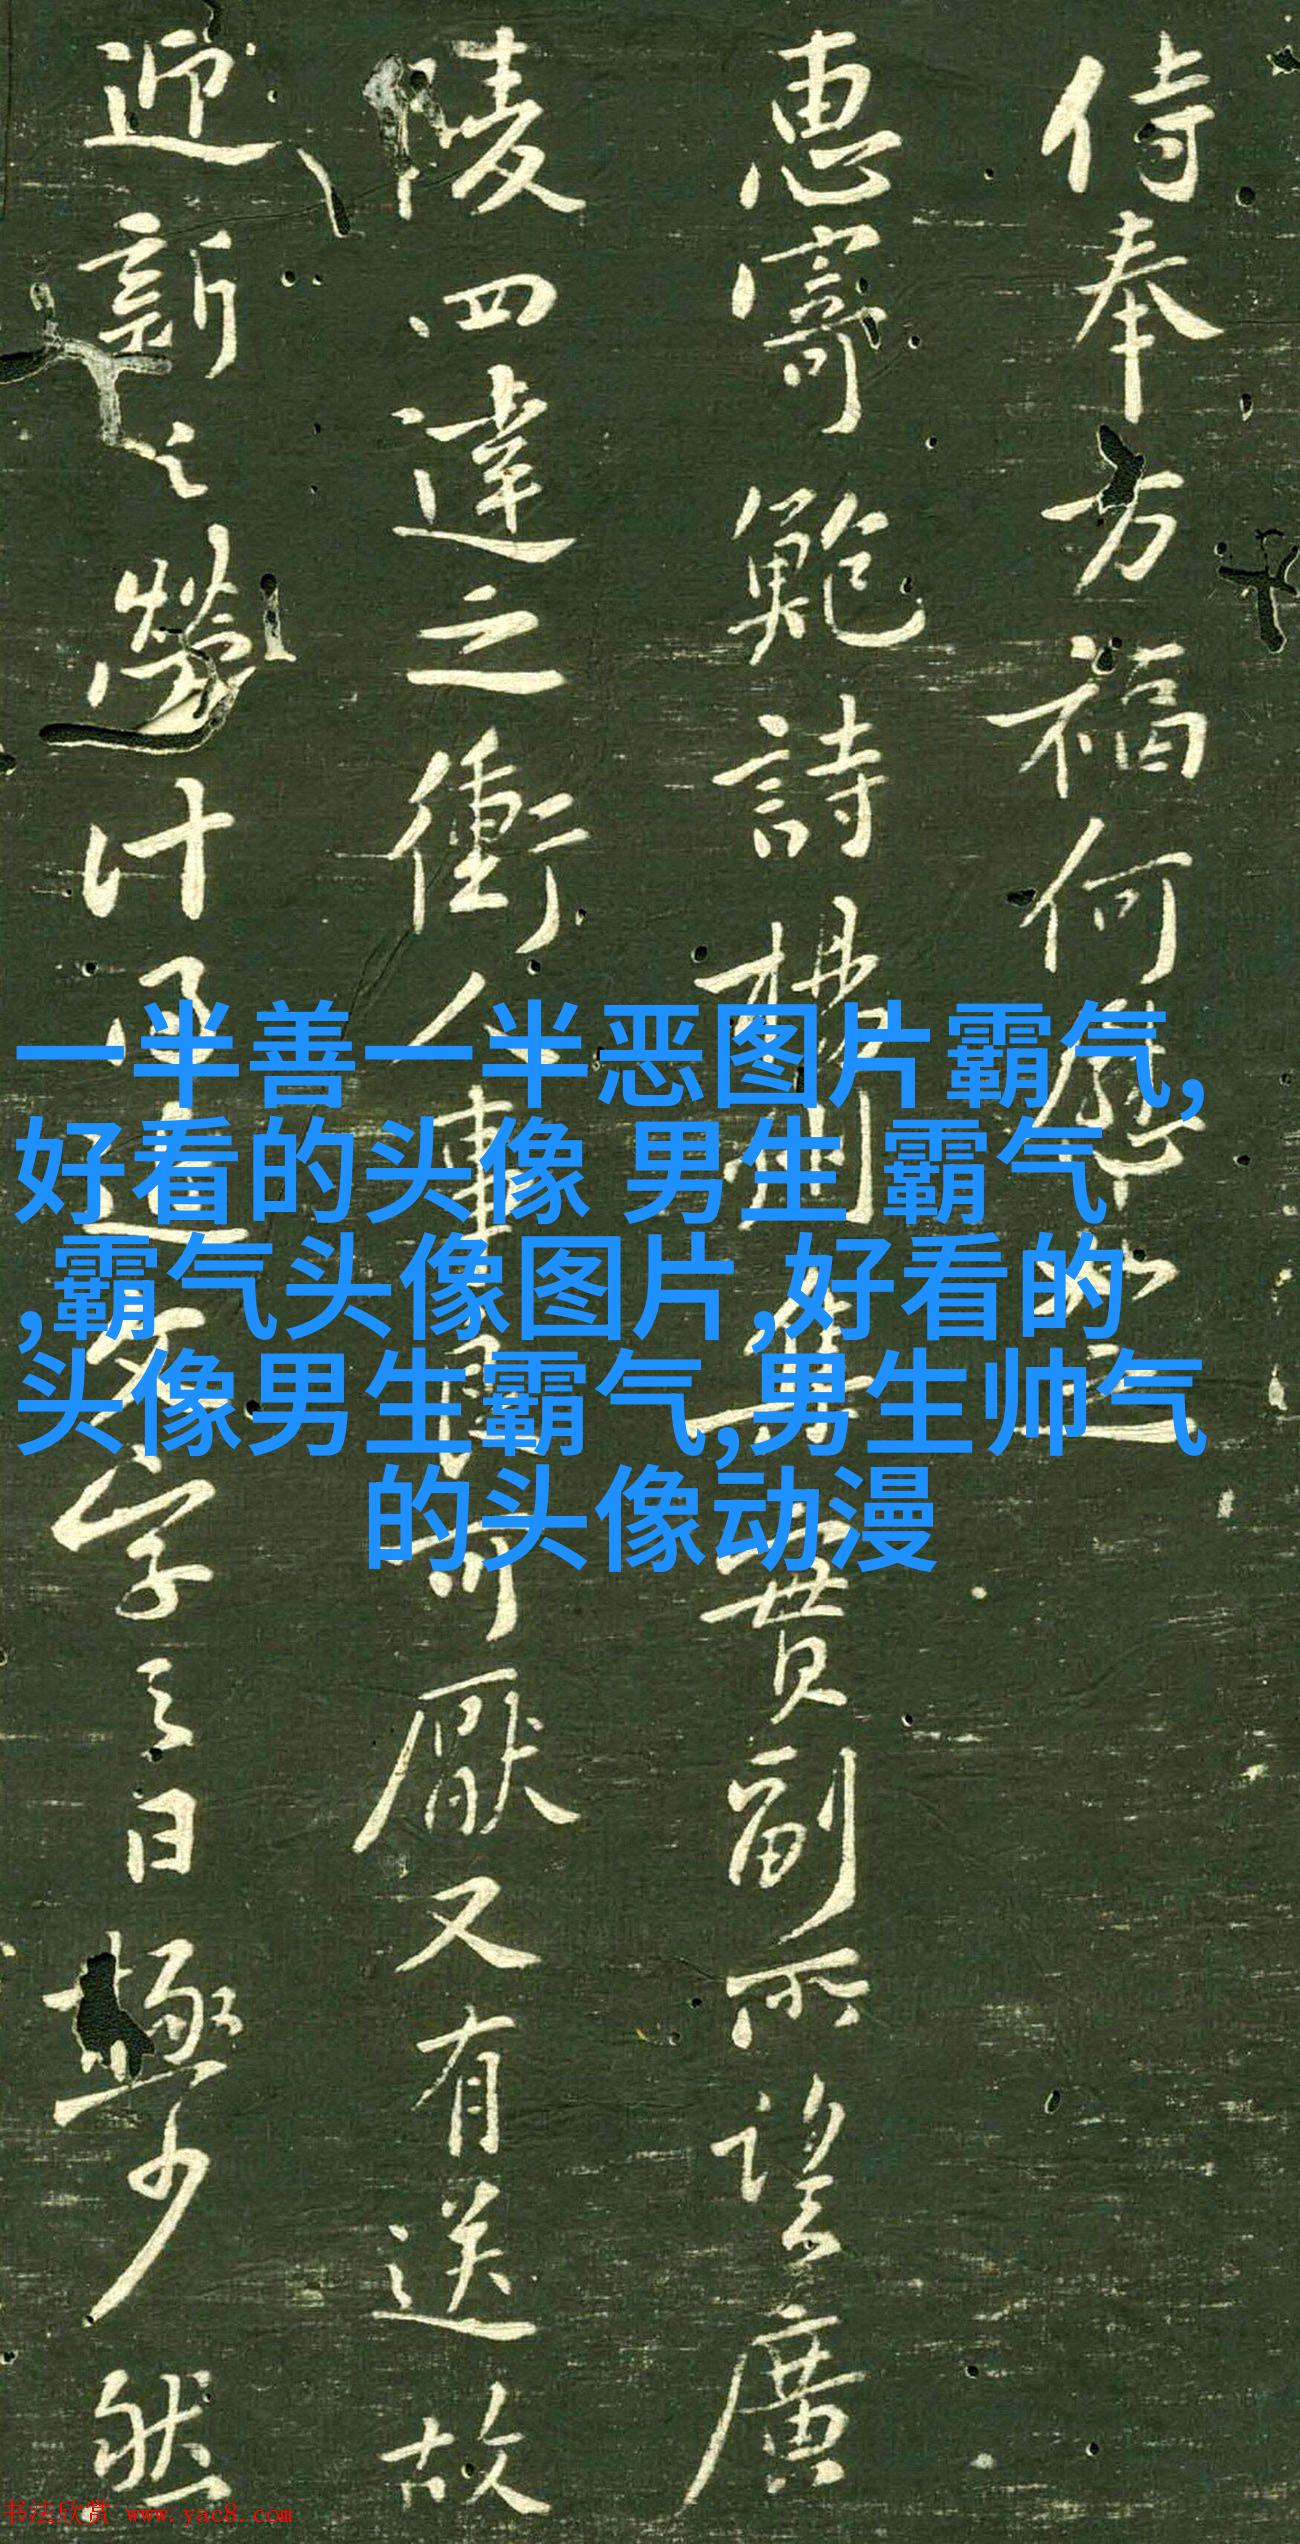 侍奉万福何慰如之
惠寄鮑詩楊州集實副所望廣
陵四達之衝人事可厭又有送故
迎新之勞計過文字之日極少然
一半善一半恶图片霸气,
好看的头像 男生 霸气
,霸气头像图片,好看的
头像男生霸气,男生帅气
的头像动漫
书法欣赏 www.yac8.com